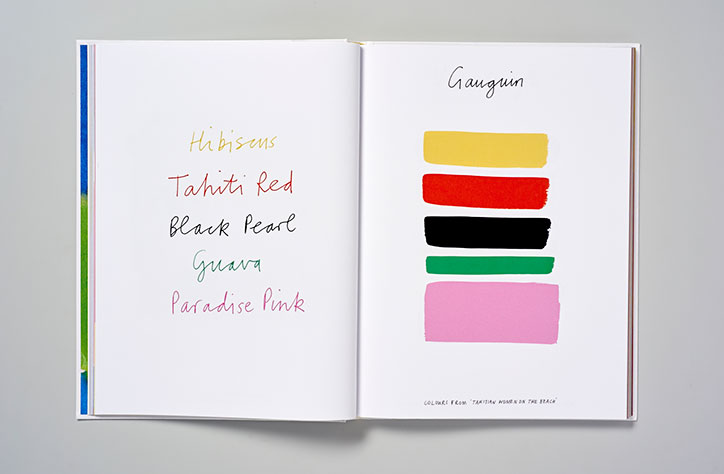 Hibiscus
Tahiti Red
Black Pearl
Guava
Paradise Pink
Gauguin
COLOURS FROM 'TAHITIAN WOMEN ON THE BEACH'